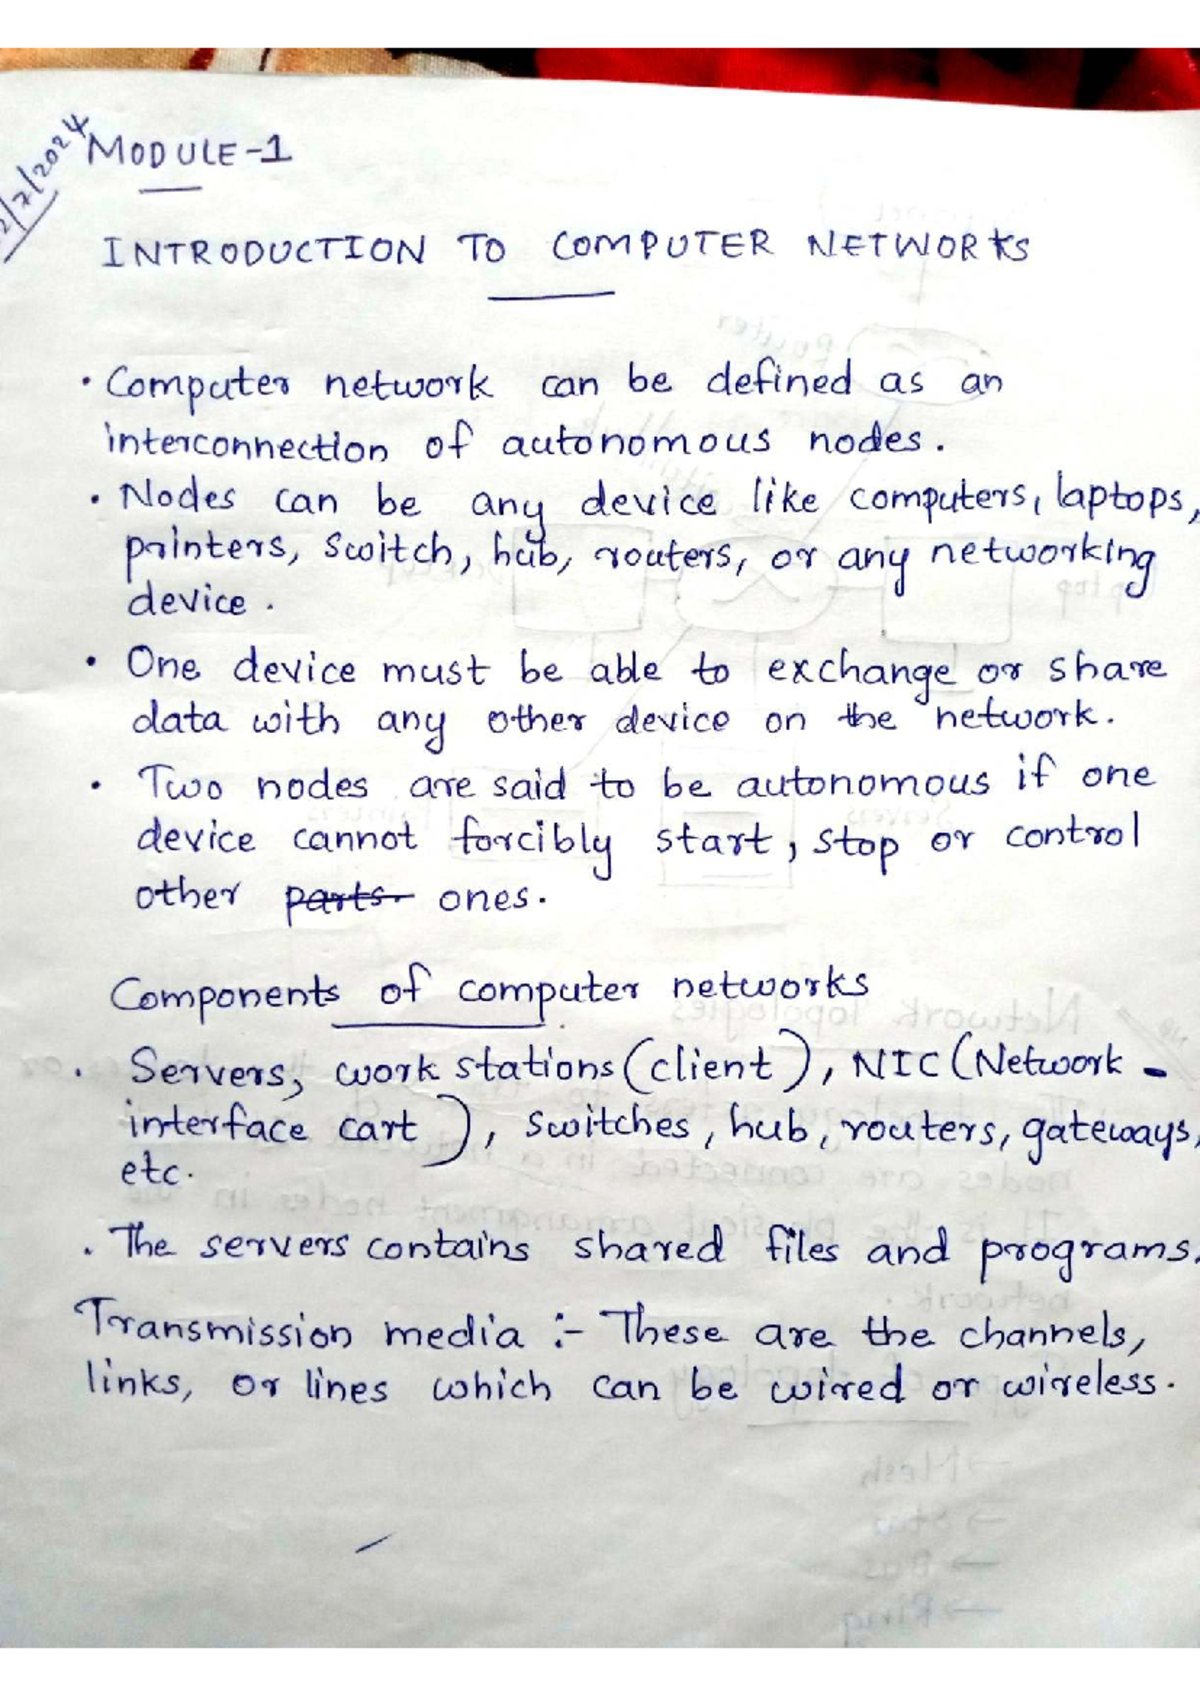 2/7/2024
MODULE-1
INTRODUCTION TO COMPUTER NETWORKS
• Computer network can be defined as an
interconnection of autonomous nodes.
• Nodes can be any device like computers, laptops,
printers, switch, hub, routers, or any networking
device.
• One device must be able to exchange or share
data with any other device on the network.
• Two nodes are said to be autonomous if one
device cannot forcibly start, stop or control
other parts ones.
Components of computer networks
• Servers, work stations (client), NIC (Network -
interface cart), switches, hub, routers, gateways,
etc.
• The servers contains shared files and programs.
Transmission media :- These are the channels,
links, or lines which can be wired or wireless.